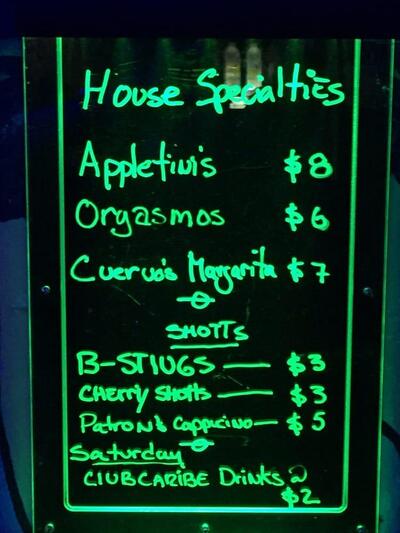 House Specialties
Appletini's $8
Orgasmos $6
Cuervo's Margarita $7
SHOTTS
B-STINGS — $3
CHERRY SHOTTS — $3
Patron's Cappucino — $5
Saturday
CLUBCARIBE Drinks
$2